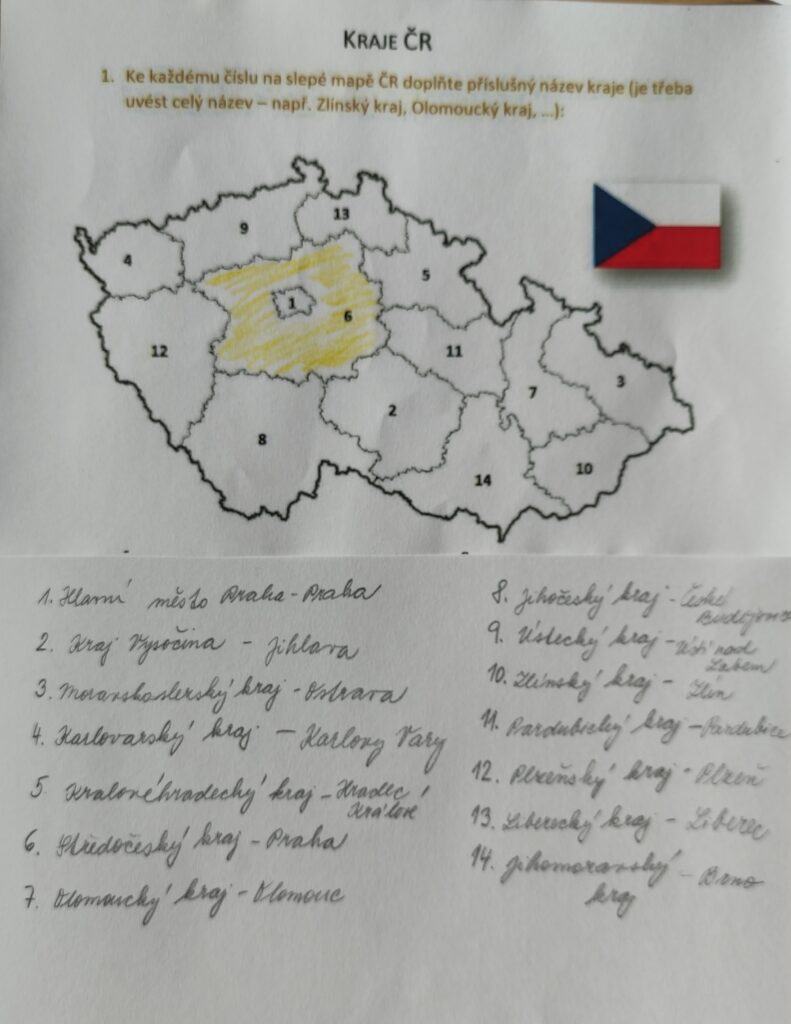 KRAJE ČR
1. Ke každému číslu na slepé mapě ČR doplňte příslušný název kraje (je třeba
uvést celý název – např. Zlínský kraj, Olomoucký kraj, ...):
13
9
4
5
1
6
12
11
3
7
2
8
10
14
1. Hlavní město Praha - Praha
2. Kraj Vysočina - Jihlava
3. Moravskoslezský kraj - Ostrava
4. Karlovarský kraj - Karlovy Vary
5 Kralovéhradecký kraj - Hradec
Králové
6. Středočeský kraj - Praha
7. Olomoucký kraj - Olomouc
8. Jihočeský kraj - České
Budějovice
9. Ústecký kraj - Ústí nad
Labem
10. Zlínský kraj -
Zlín
11. Pardubický kraj - Pardubice
12. Plzeňský kraj - Plzeň
13. Liberecký kraj - Liberec
14. Jihomoravský - Brno
kraj